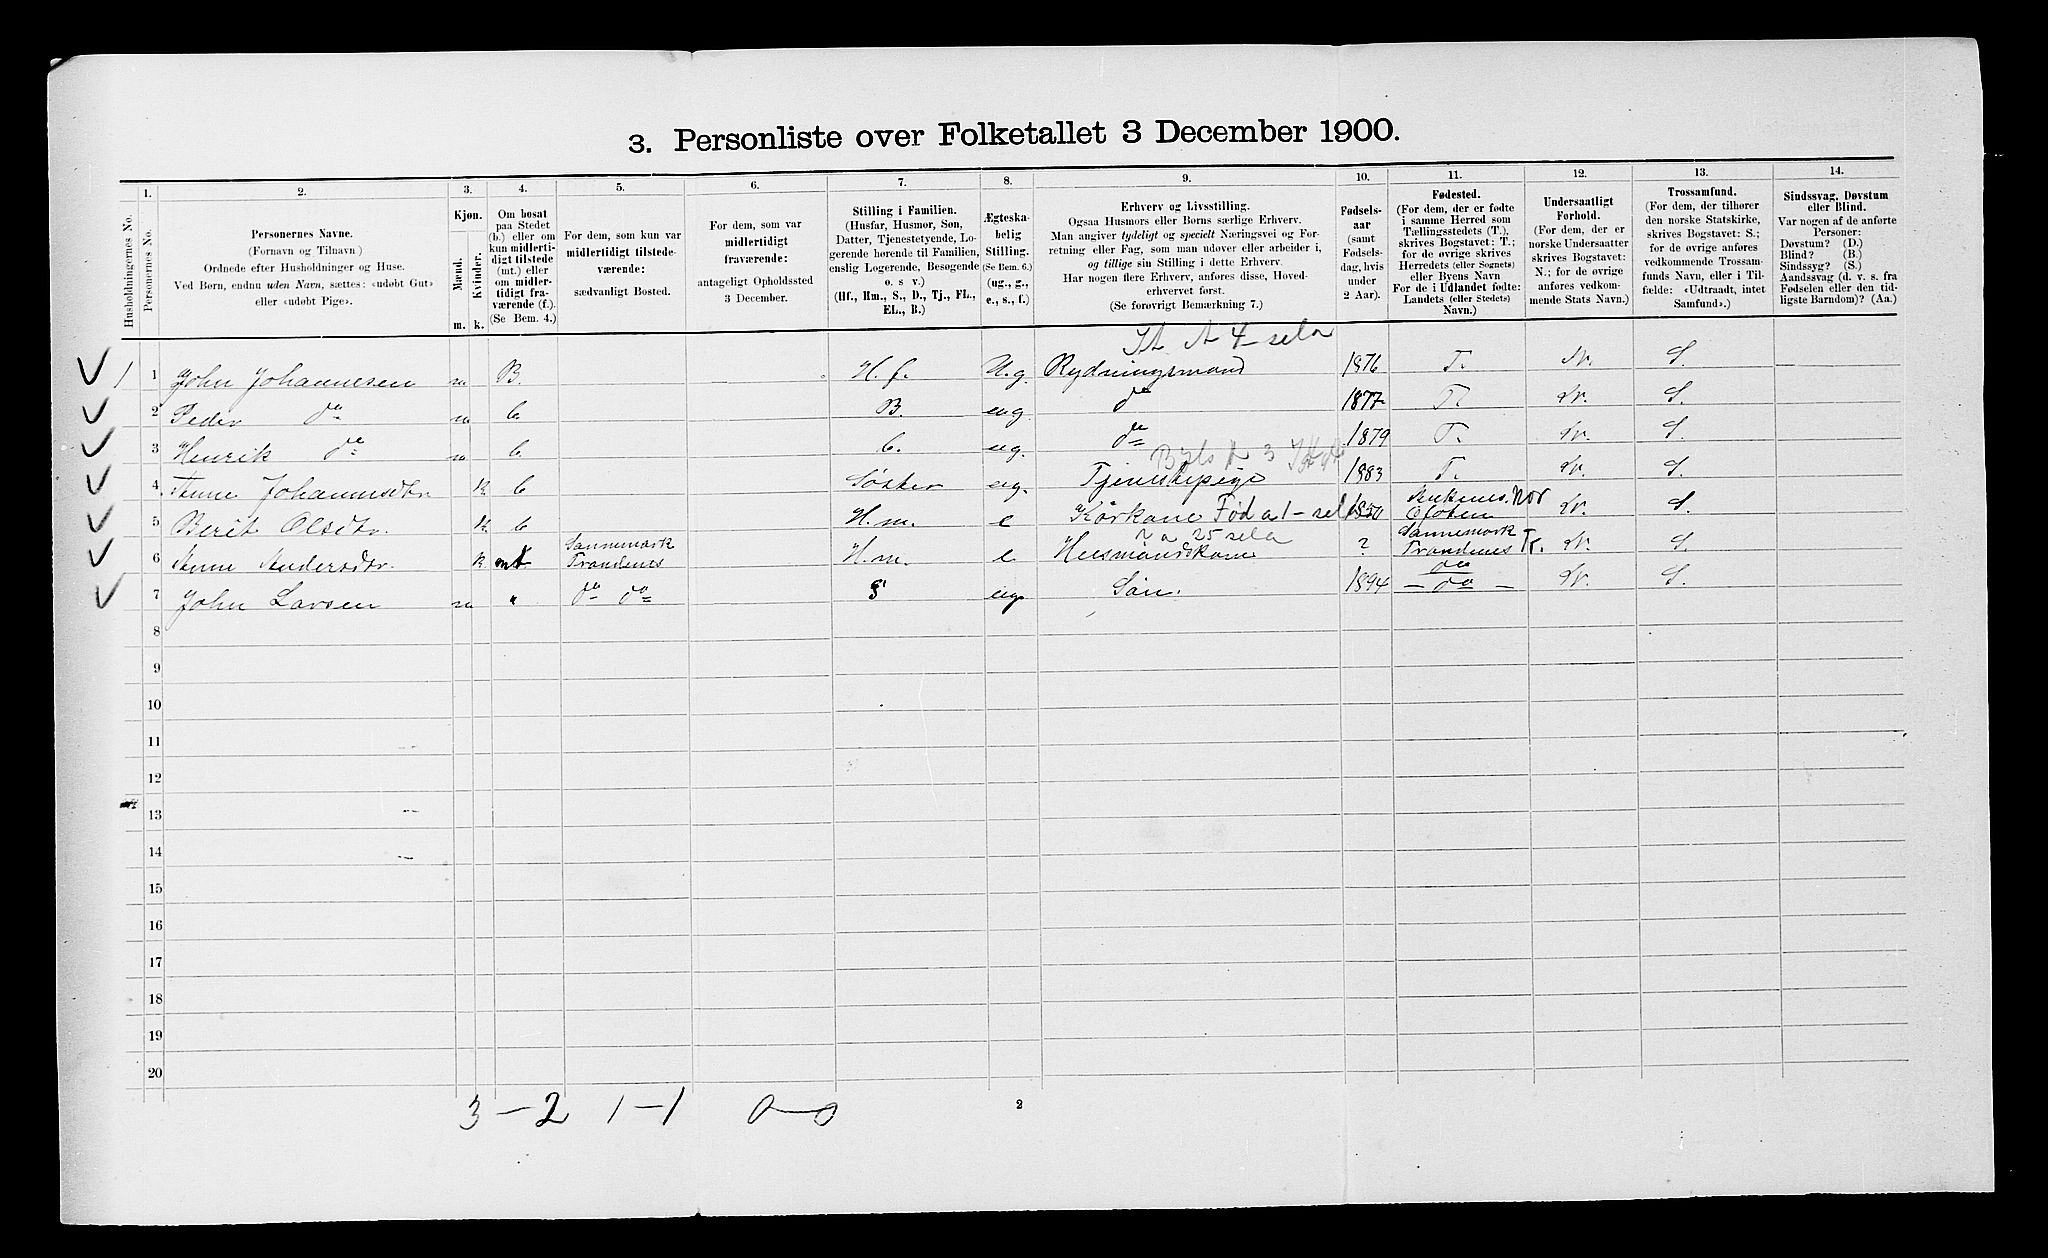 3. Personliste over Folketallet 3 December 1900.
Husholdningernes No.
1.
Personernes No.
2.
Personernes Navne.
(Fornavn og Tilnavn)
Ordnede efter Husholdninger og Huse.
Ved Børn, endnu uden Navn, sættes: «udøbt Gut»
eller «udøbt Pige».
3.
Kjøn.
Mænd.
Kvinder.
m. k.
4.
Om bosat
paa Stedet
(b.) eller om
kun midlerti-
digt tilstede
(mt.) eller
om midler-
tidigt fra-
værende (f.).
(Se Bem. 4.)
5.
For dem, som kun var
midlertidigt tilstede-
værende:
sædvanligt Bosted.
6.
For dem, som var
midlertidigt
fraværende:
antageligt Opholdssted
3 December.
7.
Stilling i Familien.
(Husfar, Husmor, Søn,
Datter, Tjenestetyende, Lo-
gerende hørende til Familien,
enslig Logerende, Besøgende
o. s v.)
(Hf., Hm., S., D., Tj., FL.,
EL., B.)
8.
Ægteska-
belig
Stilling.
(Se Bem. 6.)
(ug., g.,
e., s., f.)
9.
Erhverv og Livsstilling.
Ogsaa Husmors eller Børns særlige Erhverv.
Man angiver tydeligt og specielt Næringsvei og For-
retning eller Fag, som man udøver eller arbeider i,
og tillige sin Stilling i dette Erhverv.
Har nogen flere Erhverv, anføres disse, Hoved-
erhvervet først.
(Se forøvrigt Bemærkning 7.)
10.
Fødsels-
aar
(samt
Fødsels-
dag, hvis
under
2 Aar).
11.
Fødested.
(For dem, der er fødte
i samme Herred som
Tællingsstedets (T.),
skrives Bogstavet: T.;
for de øvrige skrives
Herredets (eller Sognets)
eller Byens Navn
For de i Udlandet fødte:
Landets (eller Stedets)
Navn.)
12.
Undersaatligt
Forhold.
(For dem, der er
norske Undersaatter
skrives Bogstavet:
N.; for de øvrige
anføres vedkom-
mende Stats Navn.)
13.
Trossamfund.
(For dem, der tilhører
den norske Statskirke,
skrives Bogstavet: S.;
for de øvrige anføres
vedkommende Trossam-
funds Navn, eller i Til-
fælde: «Udtraadt, intet
Samfund».)
14.
Sindssvag, Døvstum
eller Blind.
Var nogen af de anførte
Personer:
Døvstum? (D.)
Blind? (B.)
Sindssyg? (S.)
Aandssvag (d. v. s. fra
Fødselen eller den tid-
ligste Barndom)? (Aa.)
4 - sela
1 1 John Johannesen m B. H. f. U.g. Rydningsmand 1876 T. N. S.
2 Peder do m b. B. ug. do 1877 T. N. S.
3 Henrik do m b. b. ug. do 1879 T. N. S.
4 Anne Johannesdtr. k. b Søster ug. Tjenestepige 1883 T. N. S.
5 Berit Olsdtr. k. b H. m. e Kårkone Fød a 1 - sela 1830 Ankenes. Nor Ofoten N. S.
25 sela
6 Anne Andersdtr. k. mt Sannemark Trondenes H. m. e Husmandskone ? Sannemark Trondenes Tr. N. S.
7 John Larsen m " do do S ug Søn. 1894 do - do - N. S.
8
9
10
11
12
13
14
15
16
17
18
19
20
3 - 2 1 - 1 0 - 0
2